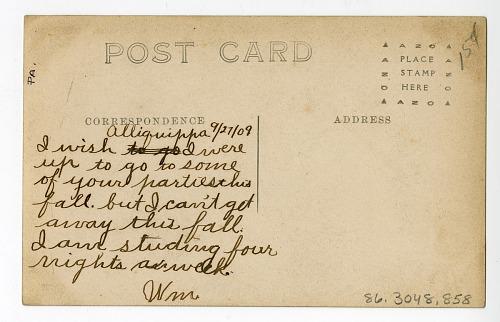 POST CARD
15¢
PA.
AZO
PLACE
STAMP
HERE
AZO
AZO
AZO
CORRESPONDENCE
ADDRESS
Alliquippa 9/27/09
I wish to go I were
up to go to some
of your parties this
fall. but I can't get
away this fall.
I am studing four
nights a week.
Wm
86.3048.858